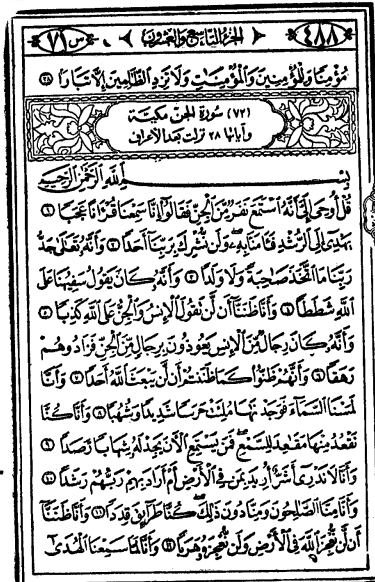 ٤٨٨ الجزء التاسع والعشرون س ٧١
مُؤْمِنًا وَلِلْمُؤْمِنِينَ وَالْمُؤْمِنَاتِ وَلَا تَزِدِ الظَّالِمِينَ إِلَّا تَبَارًا ٢٨
(٧٢) سورة الجن مكية
وآياتها ٢٨ نزلت بعد الأعراف
بِسْمِ اللَّهِ الرَّحْمَٰنِ الرَّحِيمِ
قُلْ أُوحِيَ إِلَيَّ أَنَّهُ اسْتَمَعَ نَفَرٌ مِنَ الْجِنِّ فَقَالُوا إِنَّا سَمِعْنَا قُرْآنًا عَجَبًا ١
يَهْدِي إِلَى الرُّشْدِ فَآمَنَّا بِهِ وَلَنْ نُشْرِكَ بِرَبِّنَا أَحَدًا ٢ وَأَنَّهُ تَعَالَىٰ جَدُّ
رَبِّنَا مَا اتَّخَذَ صَاحِبَةً وَلَا وَلَدًا ٣ وَأَنَّهُ كَانَ يَقُولُ سَفِيهُنَا عَلَى
اللَّهِ شَطَطًا ٤ وَأَنَّا ظَنَنَّا أَنْ لَنْ تَقُولَ الْإِنْسُ وَالْجِنُّ عَلَى اللَّهِ كَذِبًا ٥
وَأَنَّهُ كَانَ رِجَالٌ مِنَ الْإِنْسِ يَعُوذُونَ بِرِجَالٍ مِنَ الْجِنِّ فَزَادُوهُمْ
رَهَقًا ٦ وَأَنَّهُمْ ظَنُّوا كَمَا ظَنَنْتُمْ أَنْ لَنْ يَبْعَثَ اللَّهُ أَحَدًا ٧ وَأَنَّا
لَمَسْنَا السَّمَاءَ فَوَجَدْنَاهَا مُلِئَتْ حَرَسًا شَدِيدًا وَشُهُبًا ٨ وَأَنَّا كُنَّا
نَقْعُدُ مِنْهَا مَقَاعِدَ لِلسَّمْعِ فَمَنْ يَسْتَمِعِ الْآنَ يَجِدْ لَهُ شِهَابًا رَصَدًا ٩
وَأَنَّا لَا نَدْرِي أَشَرٌّ أُرِيدَ بِمَنْ فِي الْأَرْضِ أَمْ أَرَادَ بِهِمْ رَبُّهُمْ رَشَدًا ١٠
وَأَنَّا مِنَّا الصَّالِحُونَ وَمِنَّا دُونَ ذَٰلِكَ كُنَّا طَرَائِقَ قِدَدًا ١١ وَأَنَّا ظَنَنَّا
أَنْ لَنْ نُعْجِزَ اللَّهَ فِي الْأَرْضِ وَلَنْ نُعْجِزَهُ هَرَبًا ١٢ وَأَنَّا لَمَّا سَمِعْنَا الْهُدَىٰ